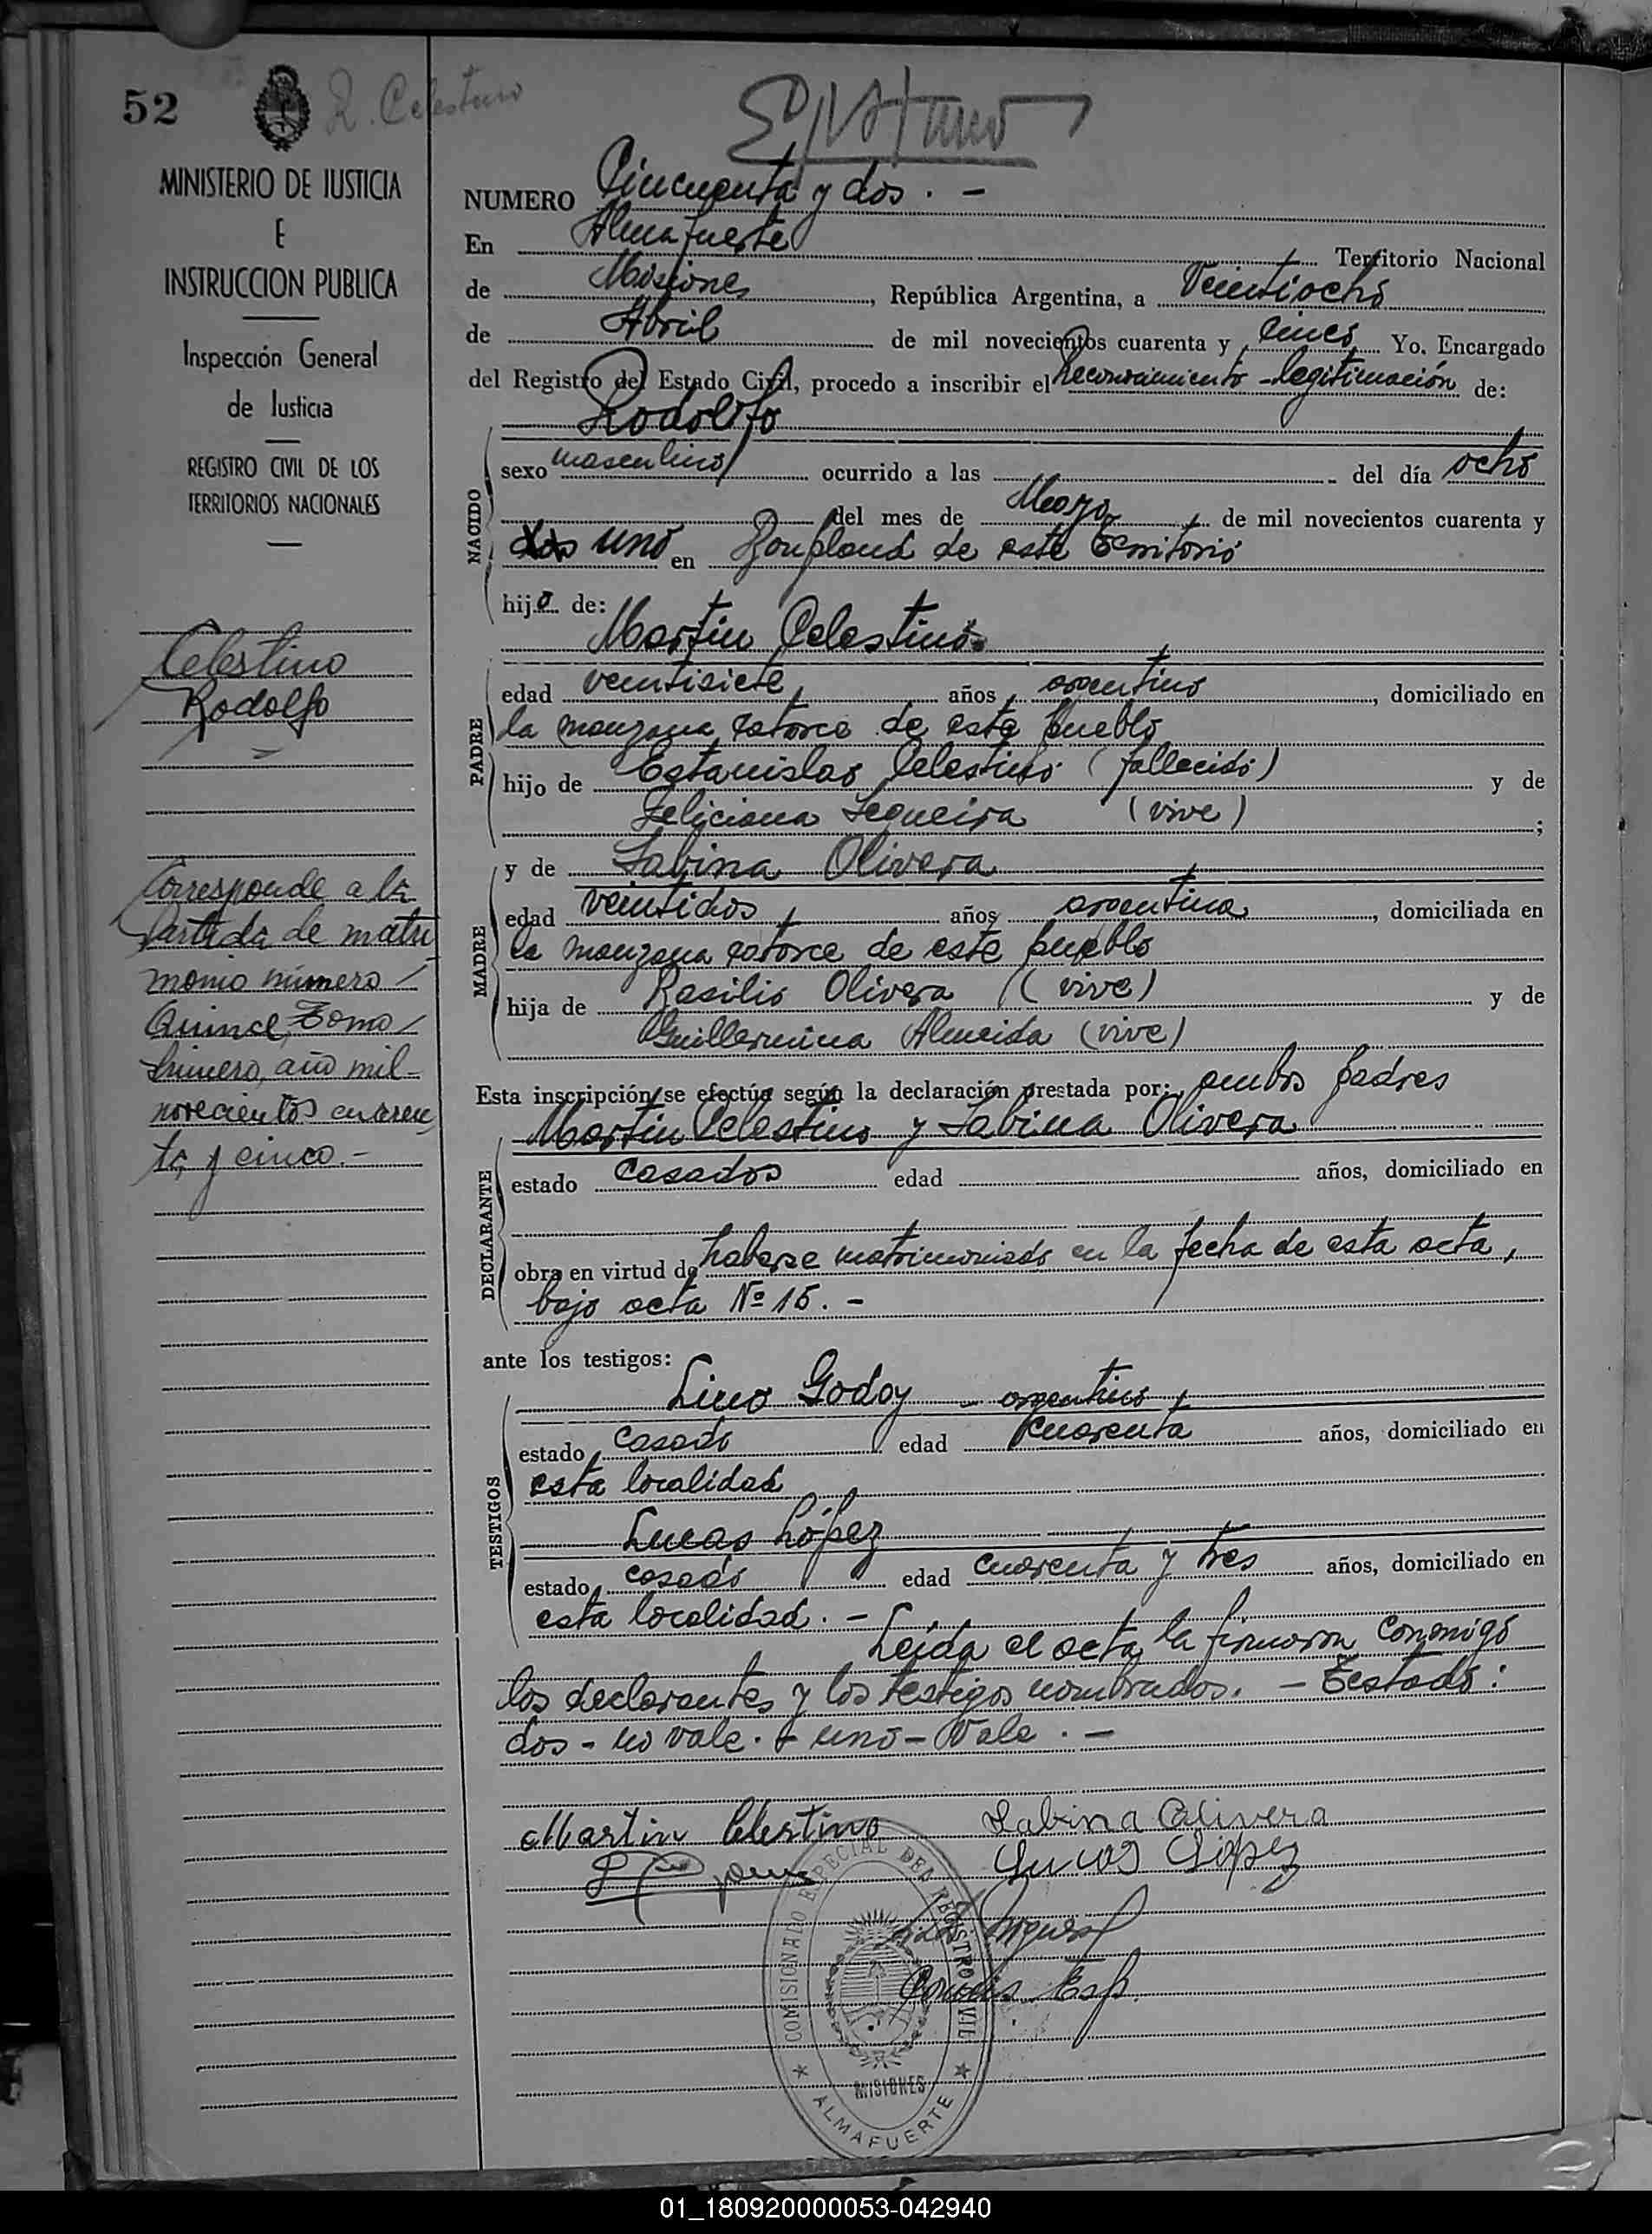 52
R. Celestino
MINISTERIO DE JUSTICIA
E
INSTRUCCION PUBLICA
Inspección General
de Justicia
REGISTRO CIVIL DE LOS
TERRITORIOS NACIONALES
Celestino
Rodolfo
Corresponde a la
Partida de matri
monio número
Quince, Tomo
primero, año mil
novecientos cuaren
ta y cinco.-
NUMERO Cincuenta y dos. -
En Almafuerte Territorio Nacional
de Misiones, República Argentina, a Veintiocho
de Abril de mil novecientos cuarenta y cinco Yo. Encargado
del Registro del Estado Civil, procedo a inscribir el Reconocimiento - legitimación de:
Rodolfo
NACIDO
sexo masculino ocurrido a las del día ocho
del mes de Marzo de mil novecientos cuarenta y
dos uno en Bonpland de este territorio
hijo de:
Martin Celestino
PADRE
edad veintisiete, años, argentino, domiciliado en
la manzana catorce de este pueblo
hijo de Estanislao Celestino (fallecido) y de
Feliciana Sequeira (vive) ;
MADRE
y de Sabina Olivera
edad veintidos, años argentina, domiciliada en
la manzana catorce de este pueblo
hija de Basilio Olivera (vive) y de
Guillermina Almeida (vive)
Esta inscripción se efectúa según la declaración prestada por: ambos padres
DECLARANTE
Martin Celestino y Sabina Olivera
estado casados edad años, domiciliado en
obra en virtud de haberse matrimoniado en la fecha de esta acta,
bajo acta Nº 15. -
ante los testigos:
TESTIGOS
Lino Godoy - argentino,
estado casado edad cuarenta años, domiciliado en
esta localidad
Lucas López
estado casado edad cuarenta y tres años, domiciliado en
esta localidad. -
Leida el acta la firmaron conmigo
los declarantes y los testigos nombrados. - Testado:
dos - no vale. + uno - Vale. -
Martin Celestino Sabina Olivera
Lucas López
Comis. Esp.
COMISIONADO ESPECIAL DEL REGISTRO CIVIL
MISIONES
ALMAFUERTE
01_180920000053-042940